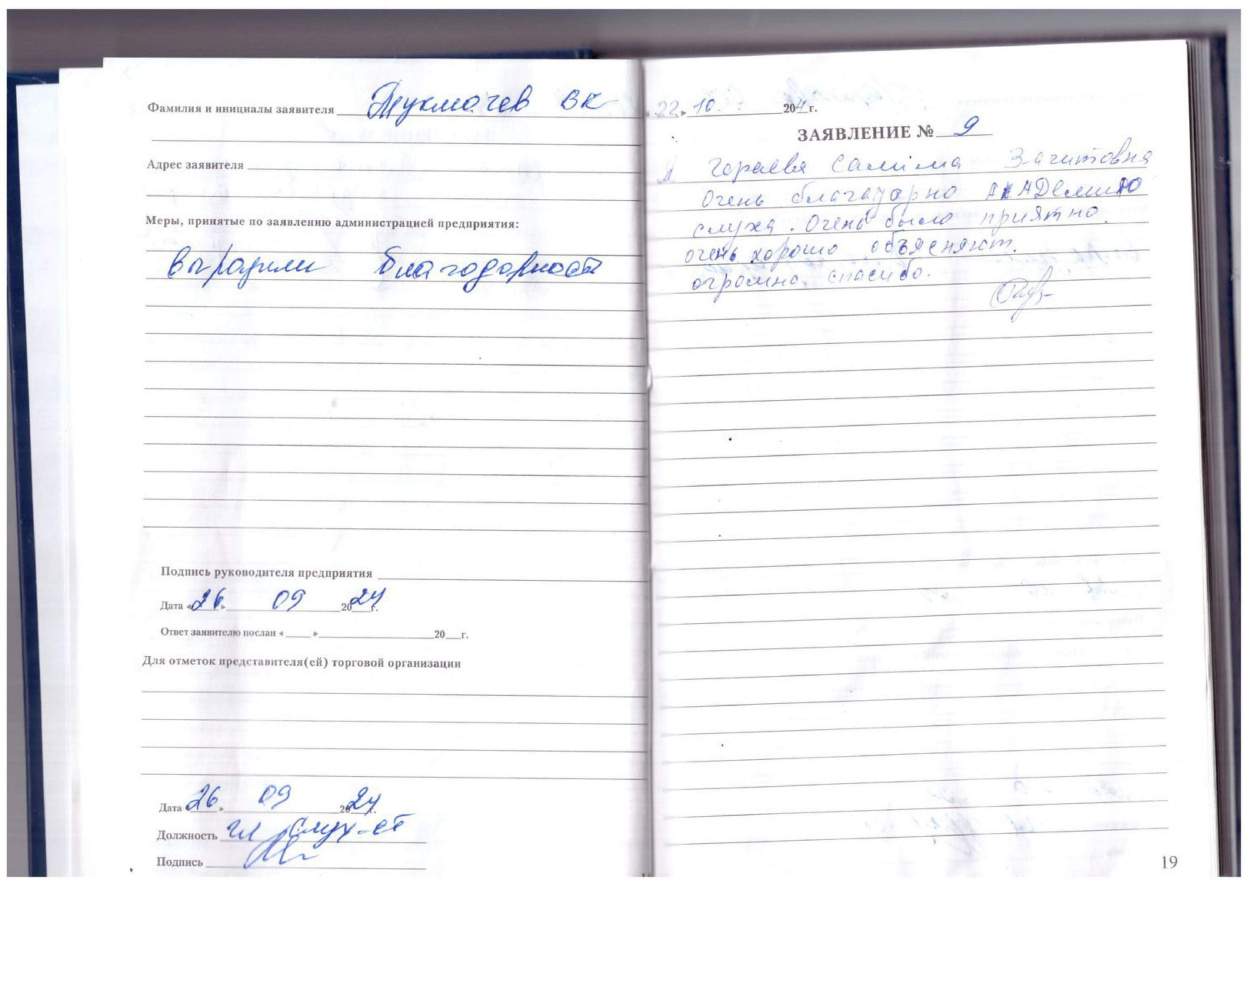 Фамилия и инициалы заявителя Тукмачев ВК
Адрес заявителя
Меры, принятые по заявлению администрацией предприятия:
выразили благодарность
Подпись руководителя предприятия
Дата «26» 09 2024 г.
Ответ заявителю послан «___» 20__г.
Для отметок представителя(ей) торговой организации
Дата 26 » 09 2024 г.
Должность гл слух-ст
Подпись
«22» 10. 204 г.
ЗАЯВЛЕНИЕ № 9
Я Гораева Салима Загитовна
Очень благадарно АКАДЕмиЮ
слуха. Очень было приятно.
очень хорошо объясняют.
огромно спасибо.
19